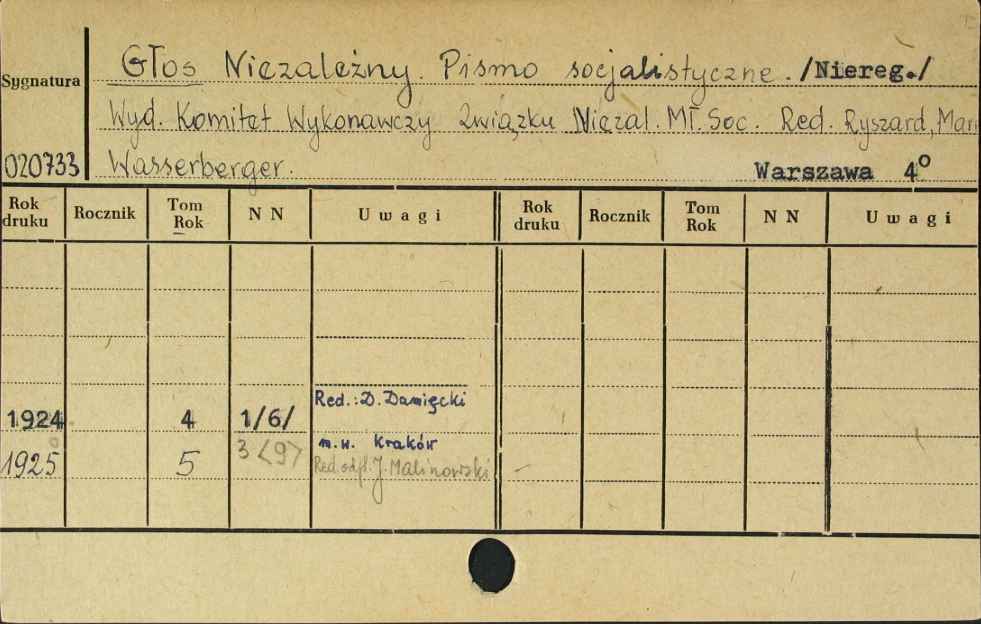 Głos Niezależny. Pismo socjalistyczne. /Niereg./
Sygnatura
Wyd. Komitet Wykonawczy Związku Niezal. Mł. Soc. Red. Ryszard, Mar
020733 Wasserberger. Warszawa 4º
Rok druku Rocznik Tom Rok N N Uwagi Rok druku Rocznik Tom Rok N N Uwagi
Red.: D. Damięcki
1924 4 1/6/
m.w. Kraków
1925 5 3<9> Red. odp. J. Malinowski